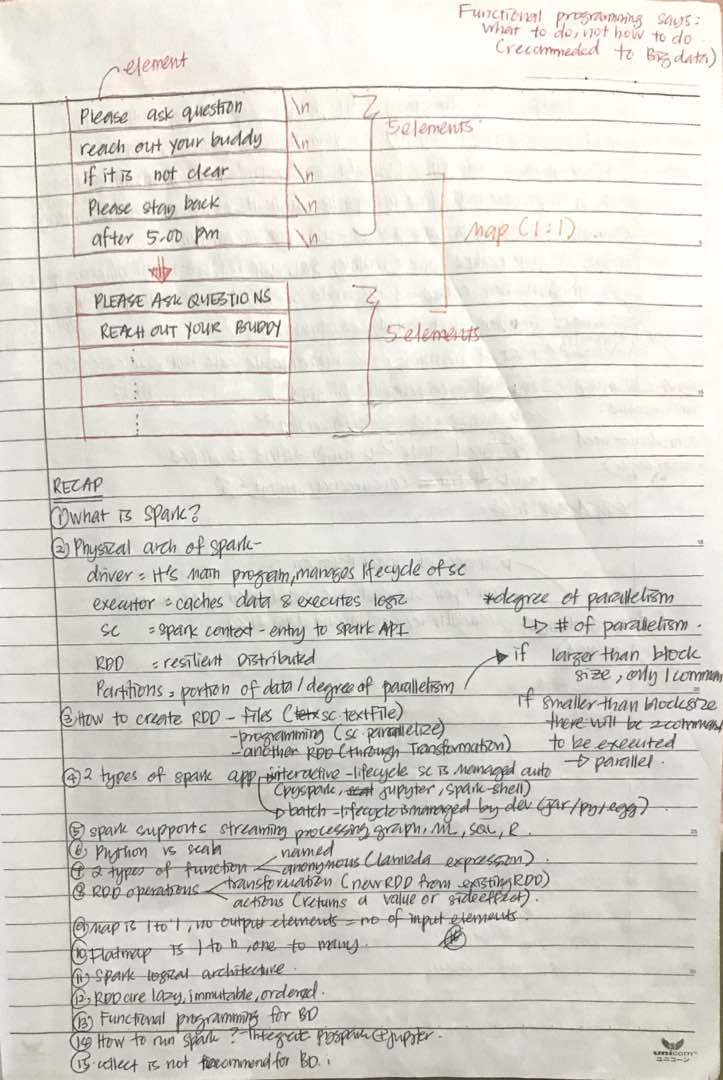 Functional programming says:
what to do, not how to do
(recommeded to Big data)
element
Please ask question \n
reach out your buddy \n
if it is not clear \n
Please stay back \n
after 5.00 pm \n
5 elements
map (1:1)
PLEASE ASK QUESTIONS
REACH OUT YOUR BUDDY
5 elements
RECAP
① What is spark?
② Physical arch of spark-
driver = it's main program, manages lifecycle of sc
executor = caches data & executes logic
sc = spark context - entry to spark API
RDD = resilient Distributed
Partitions = portion of data / degree of parallelism
*degree of parallelism
↳ # of parallelism.
if larger than block
size, only 1 comman
if smaller than blocksize
there will be 2 command
to be executed
→ parallel.
③ How to create RDD - Files (sc.textFile)
- programming (sc.parallelize)
- another RDD (through Transformation)
④ 2 types of spark app interactive - lifecycle sc is managed auto
(pyspark, jupyter, spark-shell)
batch - lifecycle is managed by dev (jar/py/egg)
⑤ spark supports streaming processing graph, ML, SQL, R.
⑥ Python vs scala
⑦ 2 types of function named
anonymous (lambda expression).
⑧ RDD operations transformation (new RDD from existing RDD)
actions (returns a value or side effect).
⑨ map is 1 to 1, no output elements = no of input elements.
⑩ Flatmap is 1 to n, one to many.
⑪ Spark logical architecture.
⑫ RDD are lazy, immutable, ordered.
⑬ Functional programming for BD
⑭ How to run spark? - Integrate pyspark + jupyter.
⑮ collect is not recommend for BD.
unicorn
ユニコーン